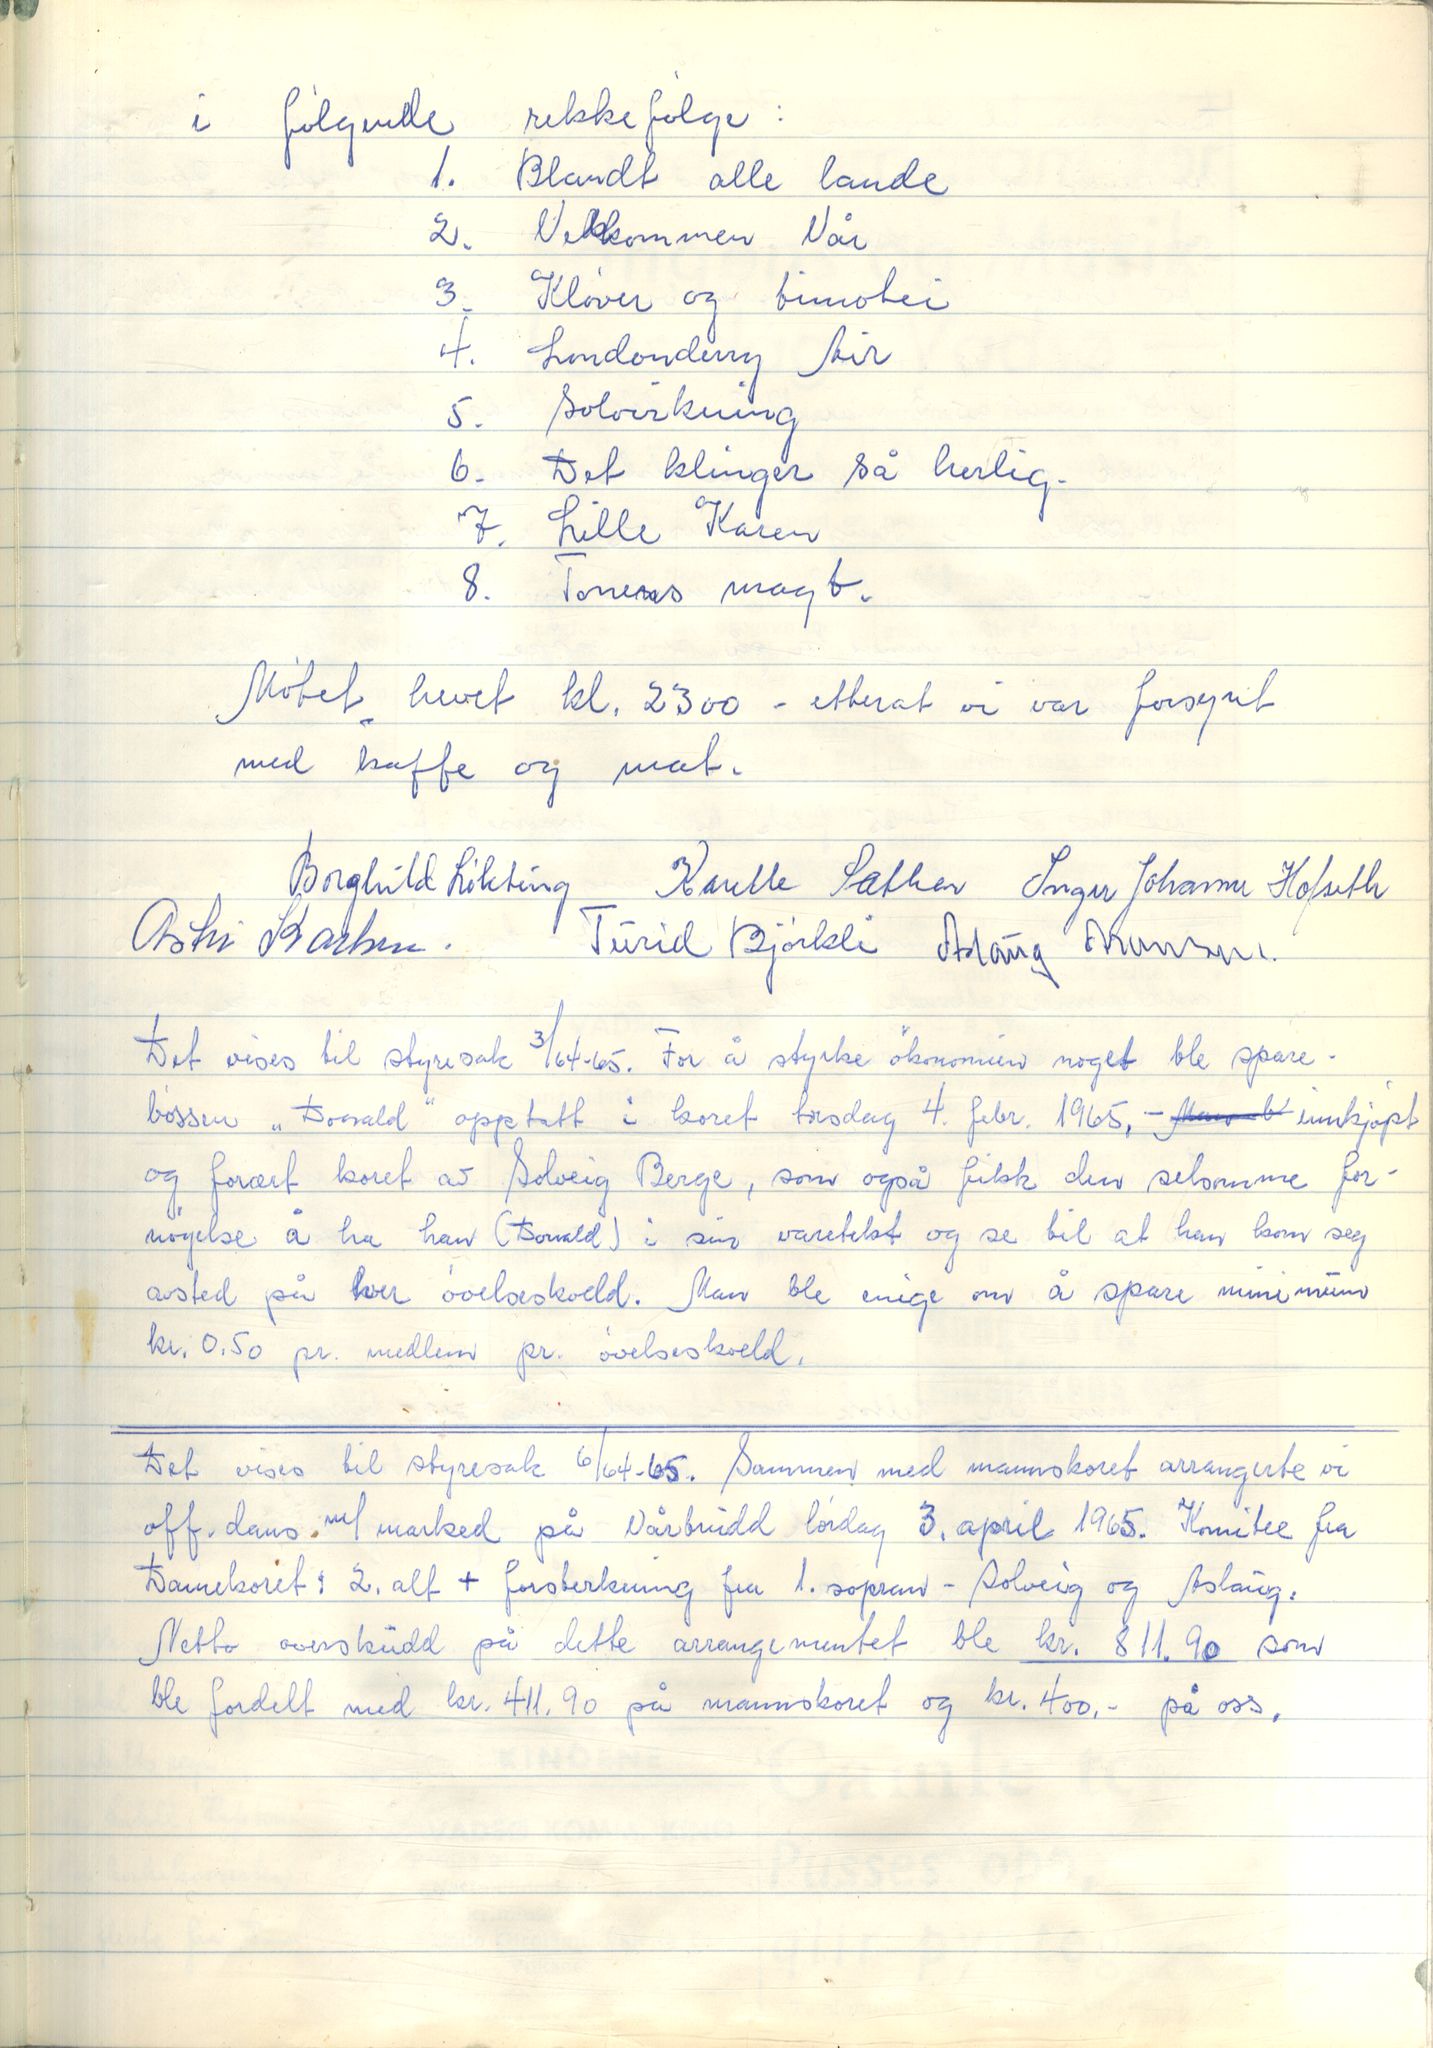 i følgende rekkefølge:
1. Blandt alle lande
2. Velkommen Vår
3. Kløver og timotei
4. Londonderry Air
5. Solvirkning
6. Det klinger så herlig.
7. Lille Karen
8. Tonenes magt.
Møtet hevet kl. 2300 - etterat vi var forsynt
med kaffe og mat.
Borghild Løkting Karelle Sæther Inger Johanne Hofseth
Astri Turid Bjørkli Aslaug
Det vises til styresak 3/64-65. For å styrke økonomien noget ble spare-
bøssen „Donald" opptatt i koret torsdag 4. febr. 1965, - innkjøpt
og forært koret av Solveig Berge, som også fikk den selsomme for-
nøyelse å ha han (Donald) i sin varetekt og se til at han kom seg
avsted på hver øvelseskveld. Man ble enige om å spare minimum
kr. 0.50 pr. medlem pr. øvelseskveld.
Det vises til styresak 6/64-65. Sammen med mannskoret arrangerte vi
off. dans m/ marked på Vårbrudd lørdag 3. april 1965. Komitee fra
Damekoret: 2. alt + forsterkning fra 1. sopran - Solveig og Aslaug.
Netto overskudd på dette arrangementet ble kr. 811.90 som
ble fordelt med kr. 411.90 på mannskoret og kr. 400.- på oss.